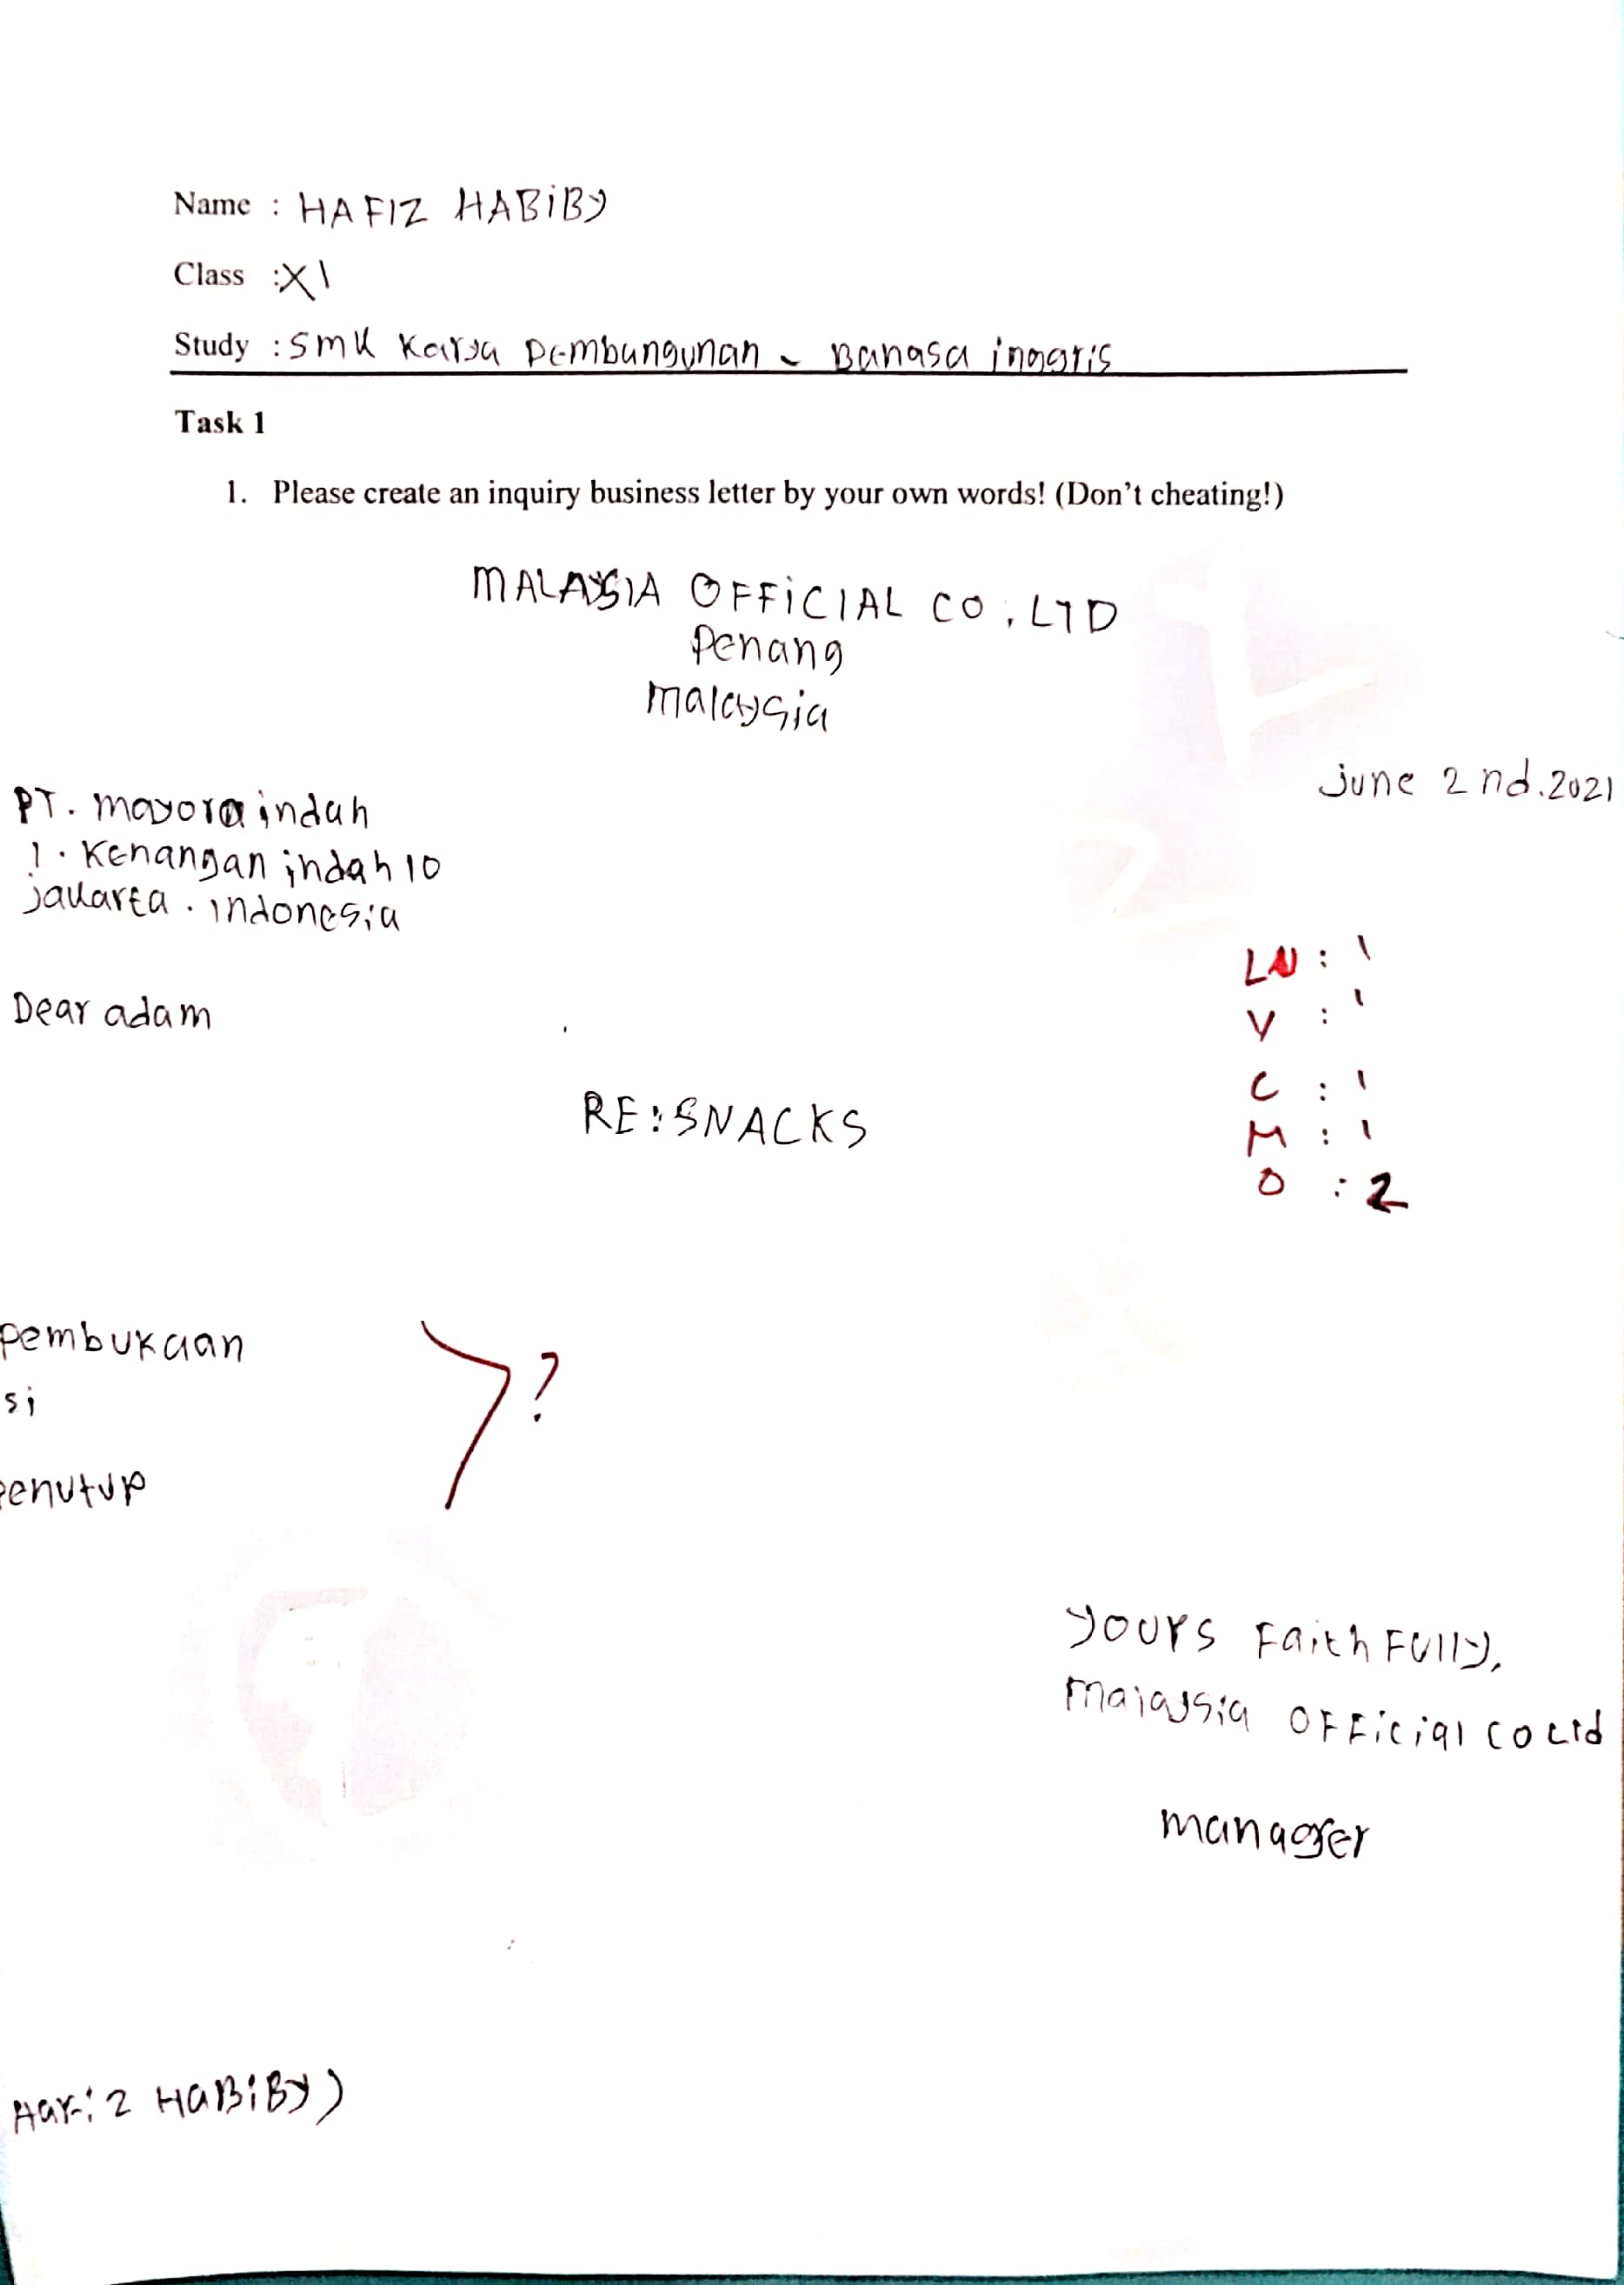 Name : HAFIZ HABIBY
Class : XI
Study : SMK Karya Pembangunan - Bahasa inggris
Task 1
1. Please create an inquiry business letter by your own words! (Don't cheating!)
MALAYSIA OFFICIAL CO. LTD
Penang
malaysia
june 2 nd. 2021
PT. mayora indah
Kenangan indah 10
jakarta. indonesia
Dear adam
RE: SNACKS
LN : 1
V : 1
C : 1
M : 1
O : 2
pembukaan
si
?
enutup
yours Faithfully,
malaysia OFFicial co Ltd
manager
HABIBY)